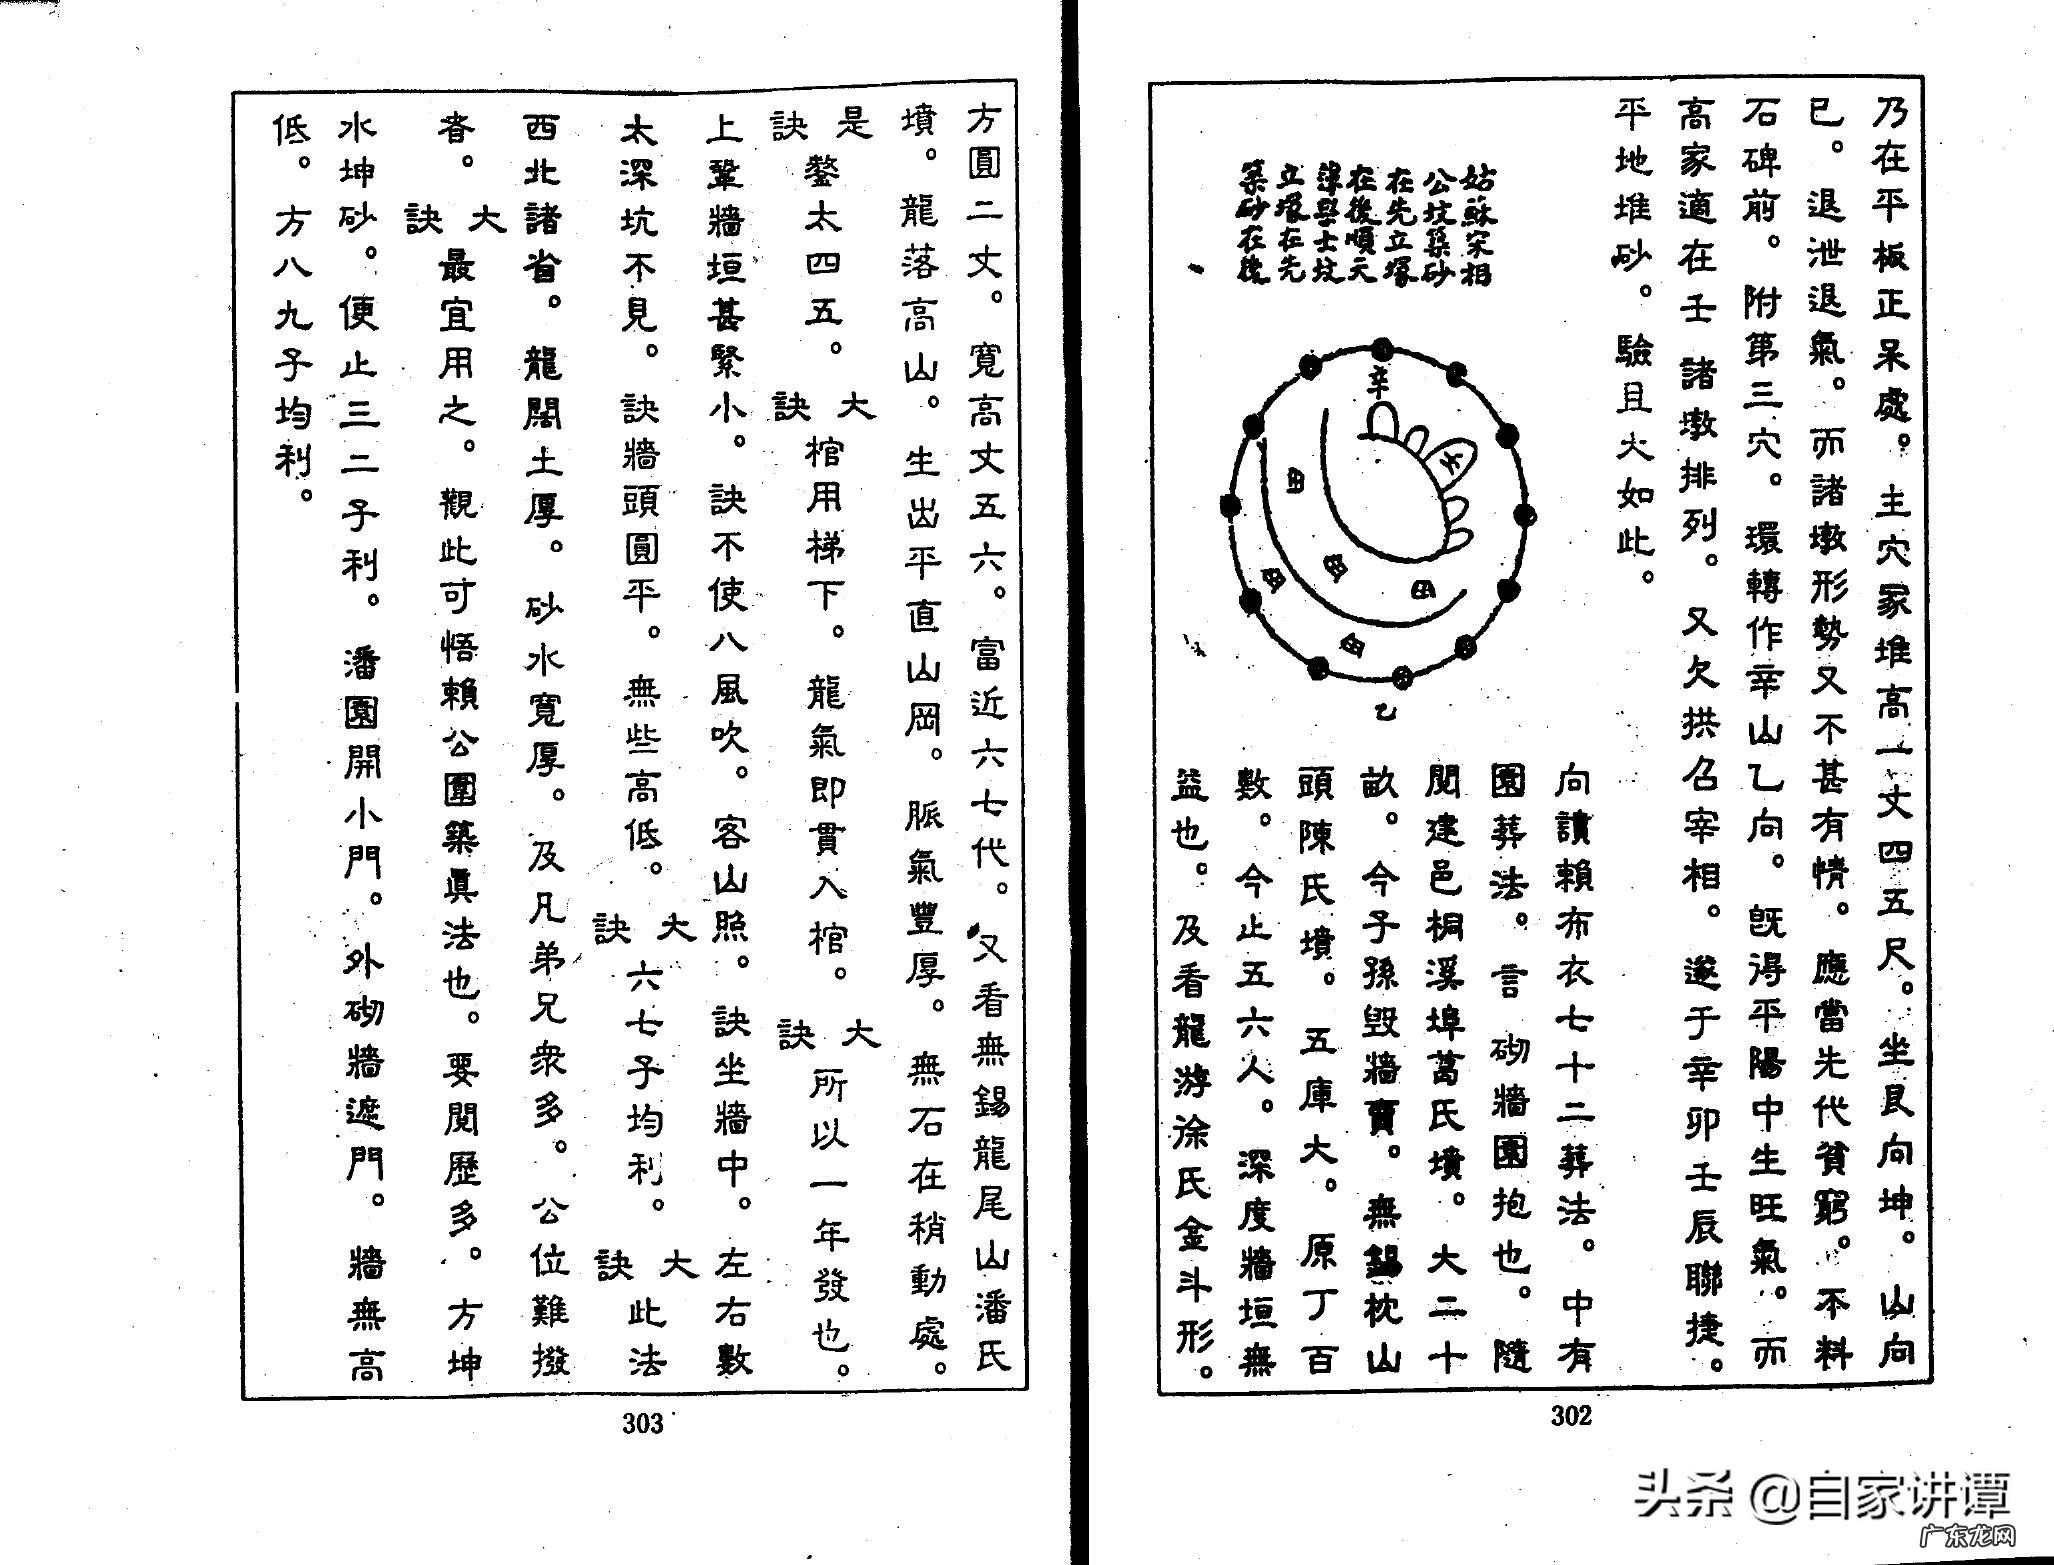 乃在平板正呆處。主穴冢堆高一丈四五尺。坐艮向坤。山向
已。退泄退氣。而諸墩形勢又不甚有情。應當先代貧窮。不料
石碑前。附第三穴。環轉作辛山乙向。既得平陽中生旺氣。而
高冢適在壬 諸墩排列。又欠拱召宰相。遂于辛卯壬辰聯捷。
平地堆砂。驗且大如此。
姑蘇宋相
公坟築砂
在先立塚
在後順天
學士坟
立塚在先
築砂在後
辛
壬
田
田
田
田
田
乙
向讀賴布衣七十二葬法。中有
園葬法。言 砌牆園抱也。隨
閱建邑桐溪埠葛氏墳。大二十
畝。今子孫毀牆賣。無錫枕山
頭陳氏墳。五庫大。原丁百
數。今止五六人。深度牆垣無
益也。及看龍游涂氏金斗形。
302
方圓二丈。寬高丈五六。富近六七代。又看無錫龍尾山潘氏
墳。龍落高山。生出平直山岡。脈氣豐厚。無石在稍動處。
是訣鏊太四五。大訣棺用梯下。龍氣即貫入棺。大訣所以一年發也。
上鞏牆垣甚緊小。訣不使八風吹。客山照。訣坐牆中。左右數
太深坑不見。訣牆頭圓平。無些高低。大訣六七子均利。大訣此法
西北諸省。龍闊土厚。砂水寬厚。及凡弟兄衆多。公位難撥
者。大訣最宜用之。觀此可悟賴公圍築真法也。要閱歷多。方坤
水坤砂。便止三二子利。潘園開小門。外砌牆遮門。牆無高
低。方八九子均利。
303
头条 @自家讲谭
广东龙网